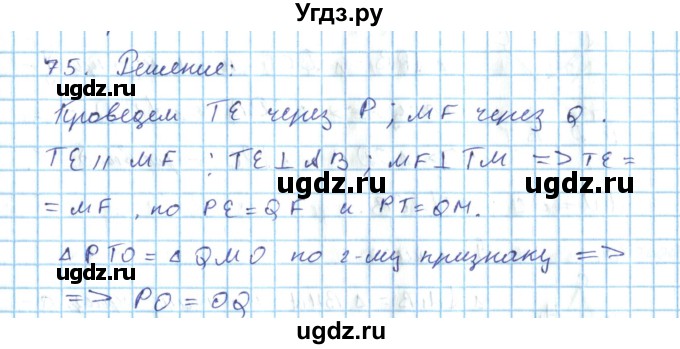 Угдз.ру
75. Решение:
Проведем TE через P; MF через Q.
TE || MF ; TE ⊥ AB ; MF ⊥ TM => TE =
ugdz.ru ugdz.ru
= MF, по PE = QF и PT = QM.
△ PTO = △ QMO по 2-му признаку =>
=> PO = OQ
ugdz.ru ugdz.ru